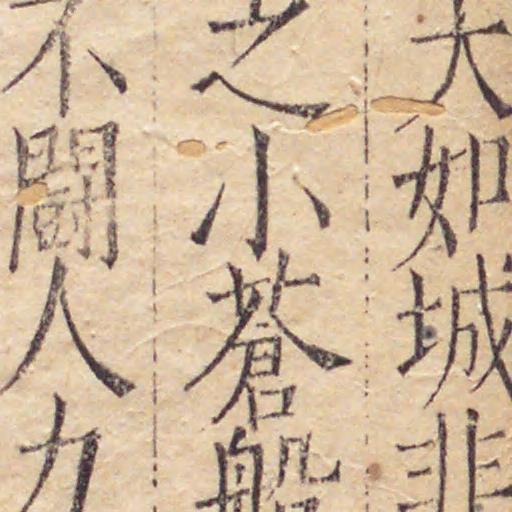 大如城非
之小蒼船
不鬭人力